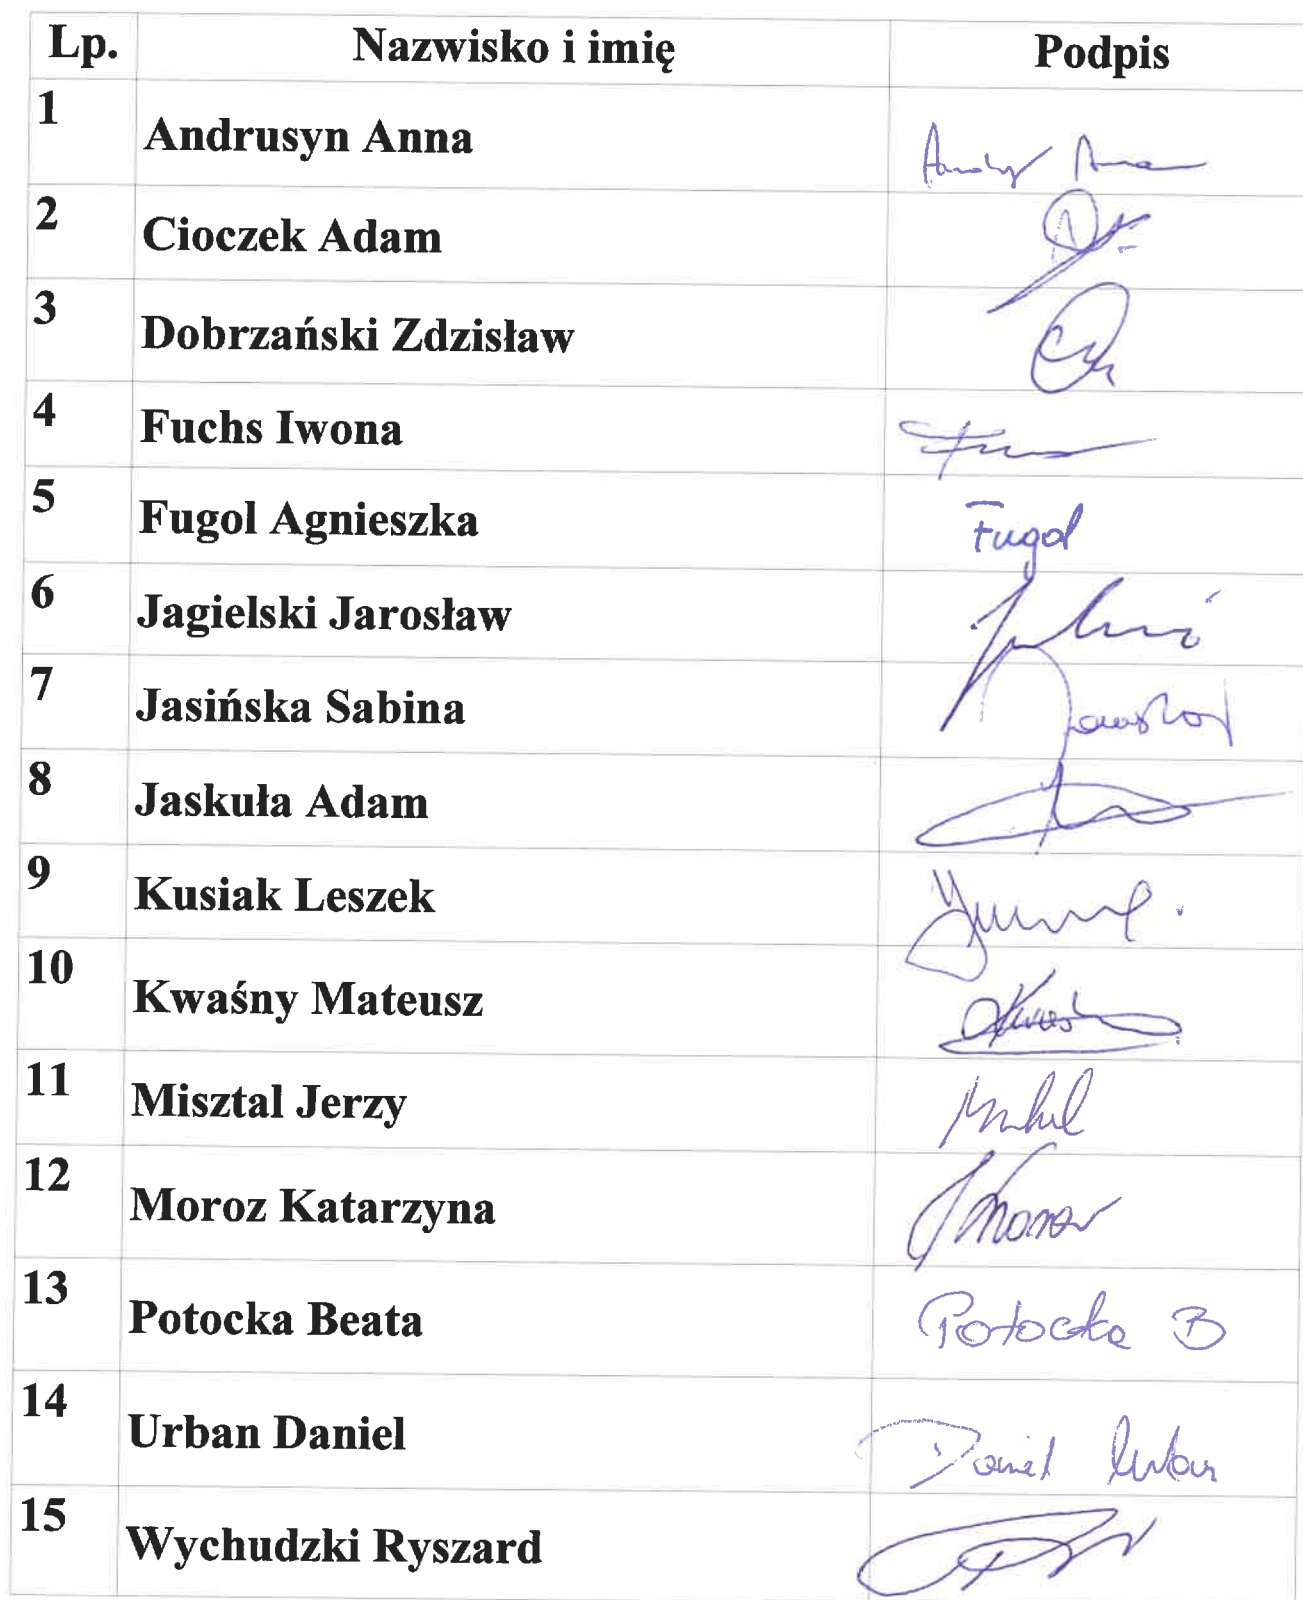 Lp. Nazwisko i imię Podpis
1 Andrusyn Anna
2 Cioczek Adam
3 Dobrzański Zdzisław
4 Fuchs Iwona
5 Fugol Agnieszka Fugol
6 Jagielski Jarosław
7 Jasińska Sabina
8 Jaskuła Adam
9 Kusiak Leszek
10 Kwaśny Mateusz
11 Misztal Jerzy
12 Moroz Katarzyna
13 Potocka Beata Potocka B
14 Urban Daniel Daniel Urban
15 Wychudzki Ryszard